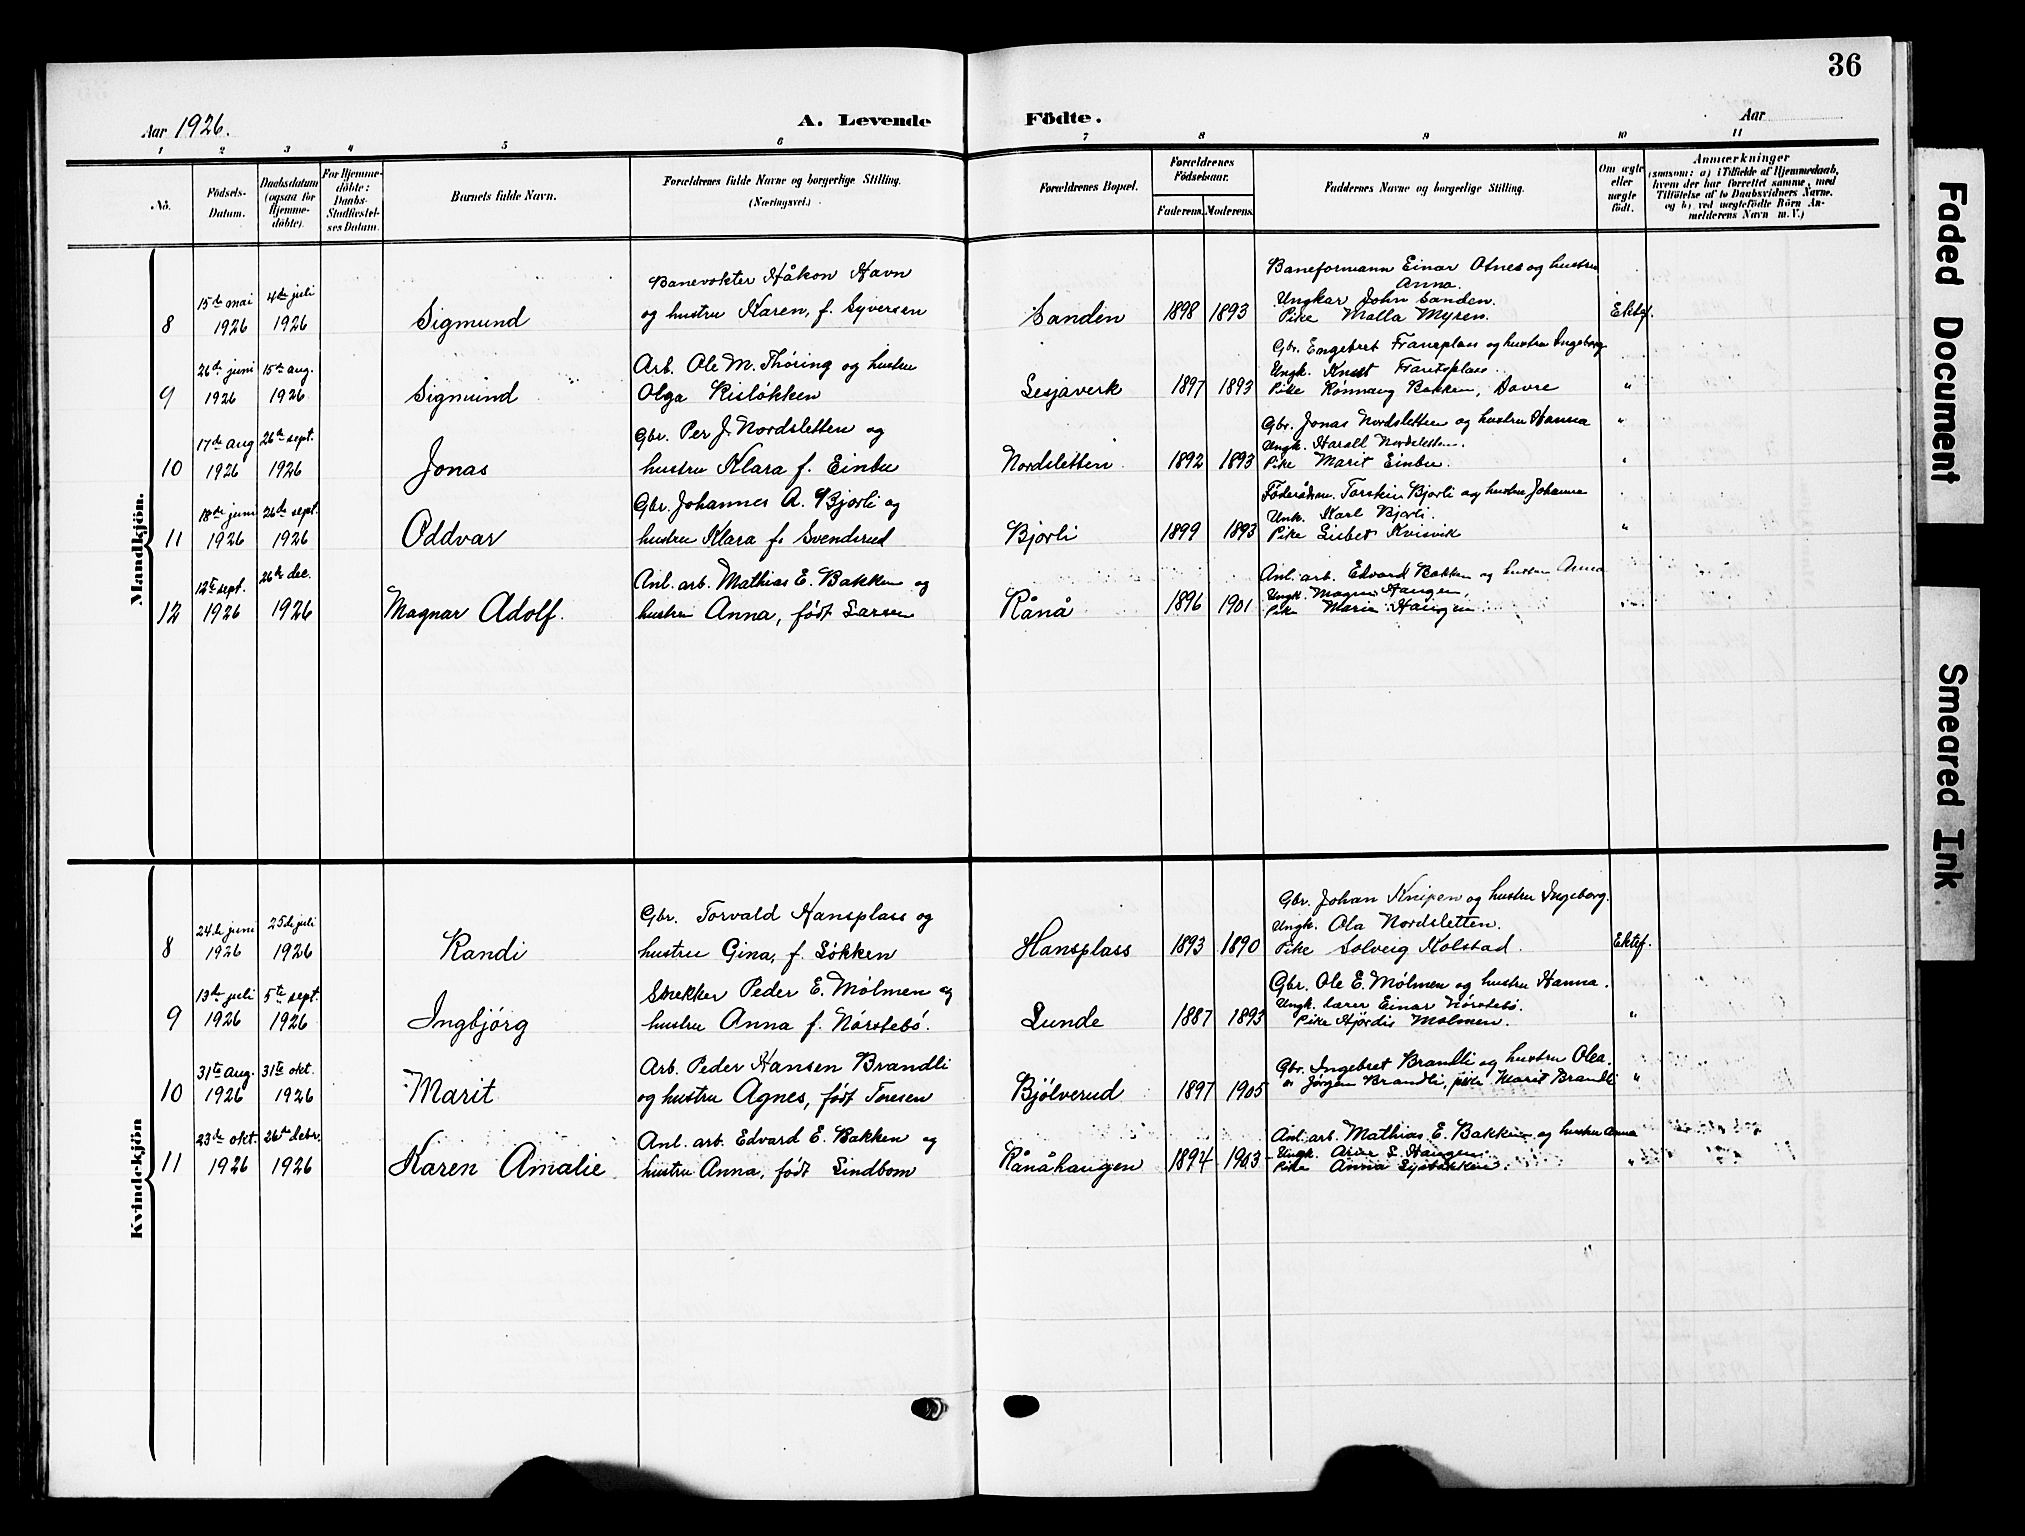 36
Aar 1926.
A. Levende Födte.
Aar
1 2 3 4 5 6 7 8 9 10 11
No.
Födsels-Datum.
Daabsdatum (ogsaa for Hjemme-döbte).
For Hjemme-döbte: Daabs-Stadfæstel-ses Datum.
Barnets fulde Navn.
Forældrenes fulde Navne og borgerlige Stilling. (Næringsvei.)
Forældrenes Bopæl.
Forældrenes Födselsaar.
Faderens. Moderens.
Faddernes Navne og borgerlige Stilling.
Om ægte eller uægte födt.
Anmærkninger
(saasom: a) i Tilfælde af Hjemmedaab, hvem der har forrettet samme, med Tilföielse af to Daabsvidners Navne. og b) ved uægtefödte Börn An-melderens Navn m. V.)
Mandkjön.
Banevokter Håkon Havn
og hustru Karen, f. Syversen
8 15de mai 1926 4de juli 1926 Sigmund Sanden 1898 1893
Baneformann Einar Otnes og hustru
Anna.
Ungkar John Sanden.
Pike Malla Myren. Ektef.
Arb. Ole M. Thøring og hustru
Olga Risløkken
9 26de juni 1926 15de aug. 1926 Sigmund Lesjaverk 1897 1893
Gbr. Engebret Fransplass og hustru Ingeborg
Ungk. Knut
Pike Rønnaug Bakken, Dovre "
Gbr. Per J. Nordsletten og
hustru Klara f. Einbu
10 17de aug 1926 26de sept. 1926 Jonas Nordsletten 1892 1893
Gbr. Jonas Nordsletten og hustru Hanna "
Ungk. Harall Nordsletten.
Pike Marit Einbu. "
Gbr. Johannes A. Bjorli og
hustru Klara f. Svendsrud
11 18de juni 1926 26de sept. 1926 Oddvar Bjorli 1899 1893
Føderådsm. Torstein Bjorli og hustru Johanne
Unk. Karl Bjorli.
Pike Lisbet Kvisvik "
Anl. arb. Mathias E. Bakken og
hustru Anna, født Larsen
12 12te sept. 1926 26de dec. 1926 Magnar Adolf. Rånå 1896 1901
Anl. arb. Edvard Bakken og hustru Anna
Ungk. Magnus Haugen,
Pike Marie Haugen "
Kvindekjön
Gbr. Torvald Hansplass og
hustru Gina, f. Løkken
8 24de juni 1926 25de juli 1926 Randi Hansplass 1893 1890
Gbr. Johan Kneipen og hustru Ingeborg.
Ungk. Ola Nordsletten.
Pike Solveig Kolstad. Ektef.
Snekker Peder E. Mølmen og
hustru Anna f. Nørstebø.
9 13de juli 1926 5te sept. 1926 Ingbjørg Lunde 1887 1893
Gbr. Ole E. Mølmen og hustru Hanna.
Ungk. lærer Einar Nørstebø.
Pike Hjørdis Mølmen. "
Arb. Peder Hansen Brandli
og hustru Agnes, født Toresen
10 31te aug. 1926 31te okt. 1926 Marit Bjölverud 1897 1905
Gbr. Ingebret Brandli og hustru Olea.
Jørgen Brandli, pike Marit Brandli "
Anl. arb. Edvard E. Bakken og
hustru Anna, født Lindbom
11 23de okt. 1926 26de debr. 1926 Karen Amalie Rånåhaugen 1894 1903
Anl. arb. Mathias E. Bakken og hustru Anna
Ungk. Arne L. Haugen.
Pike Anna "
Faded Document
Smeared Ink